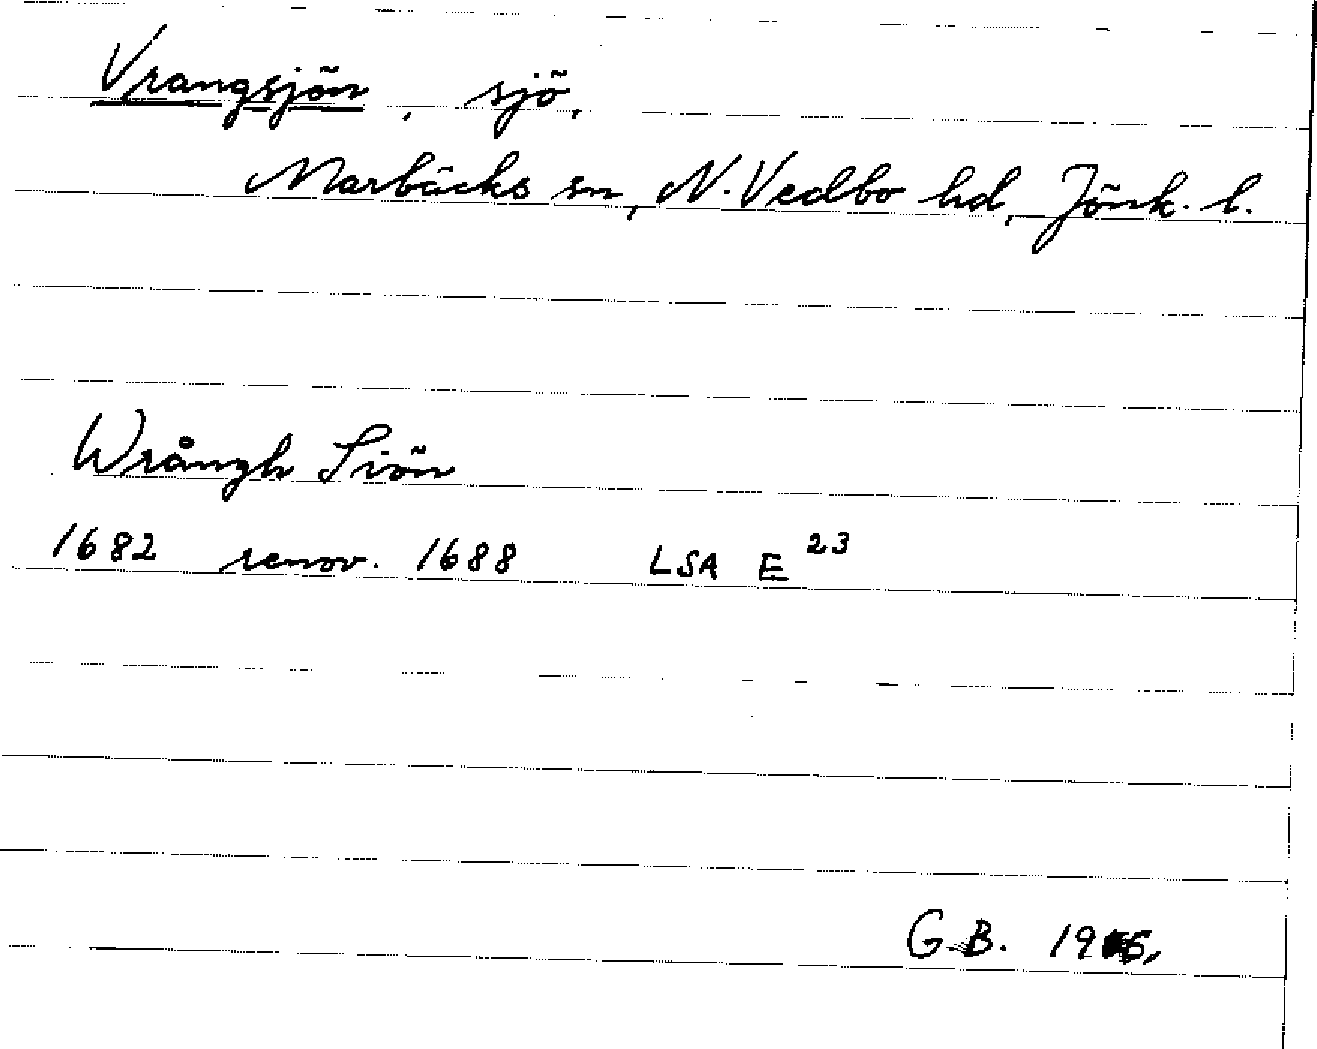 Vrangsjön, sjö,
Marbäcks sn, N. Vedbo hd, Jönk. l.
Wrångh Siön
1682 renov. 1688 LSA E 23
G.B.